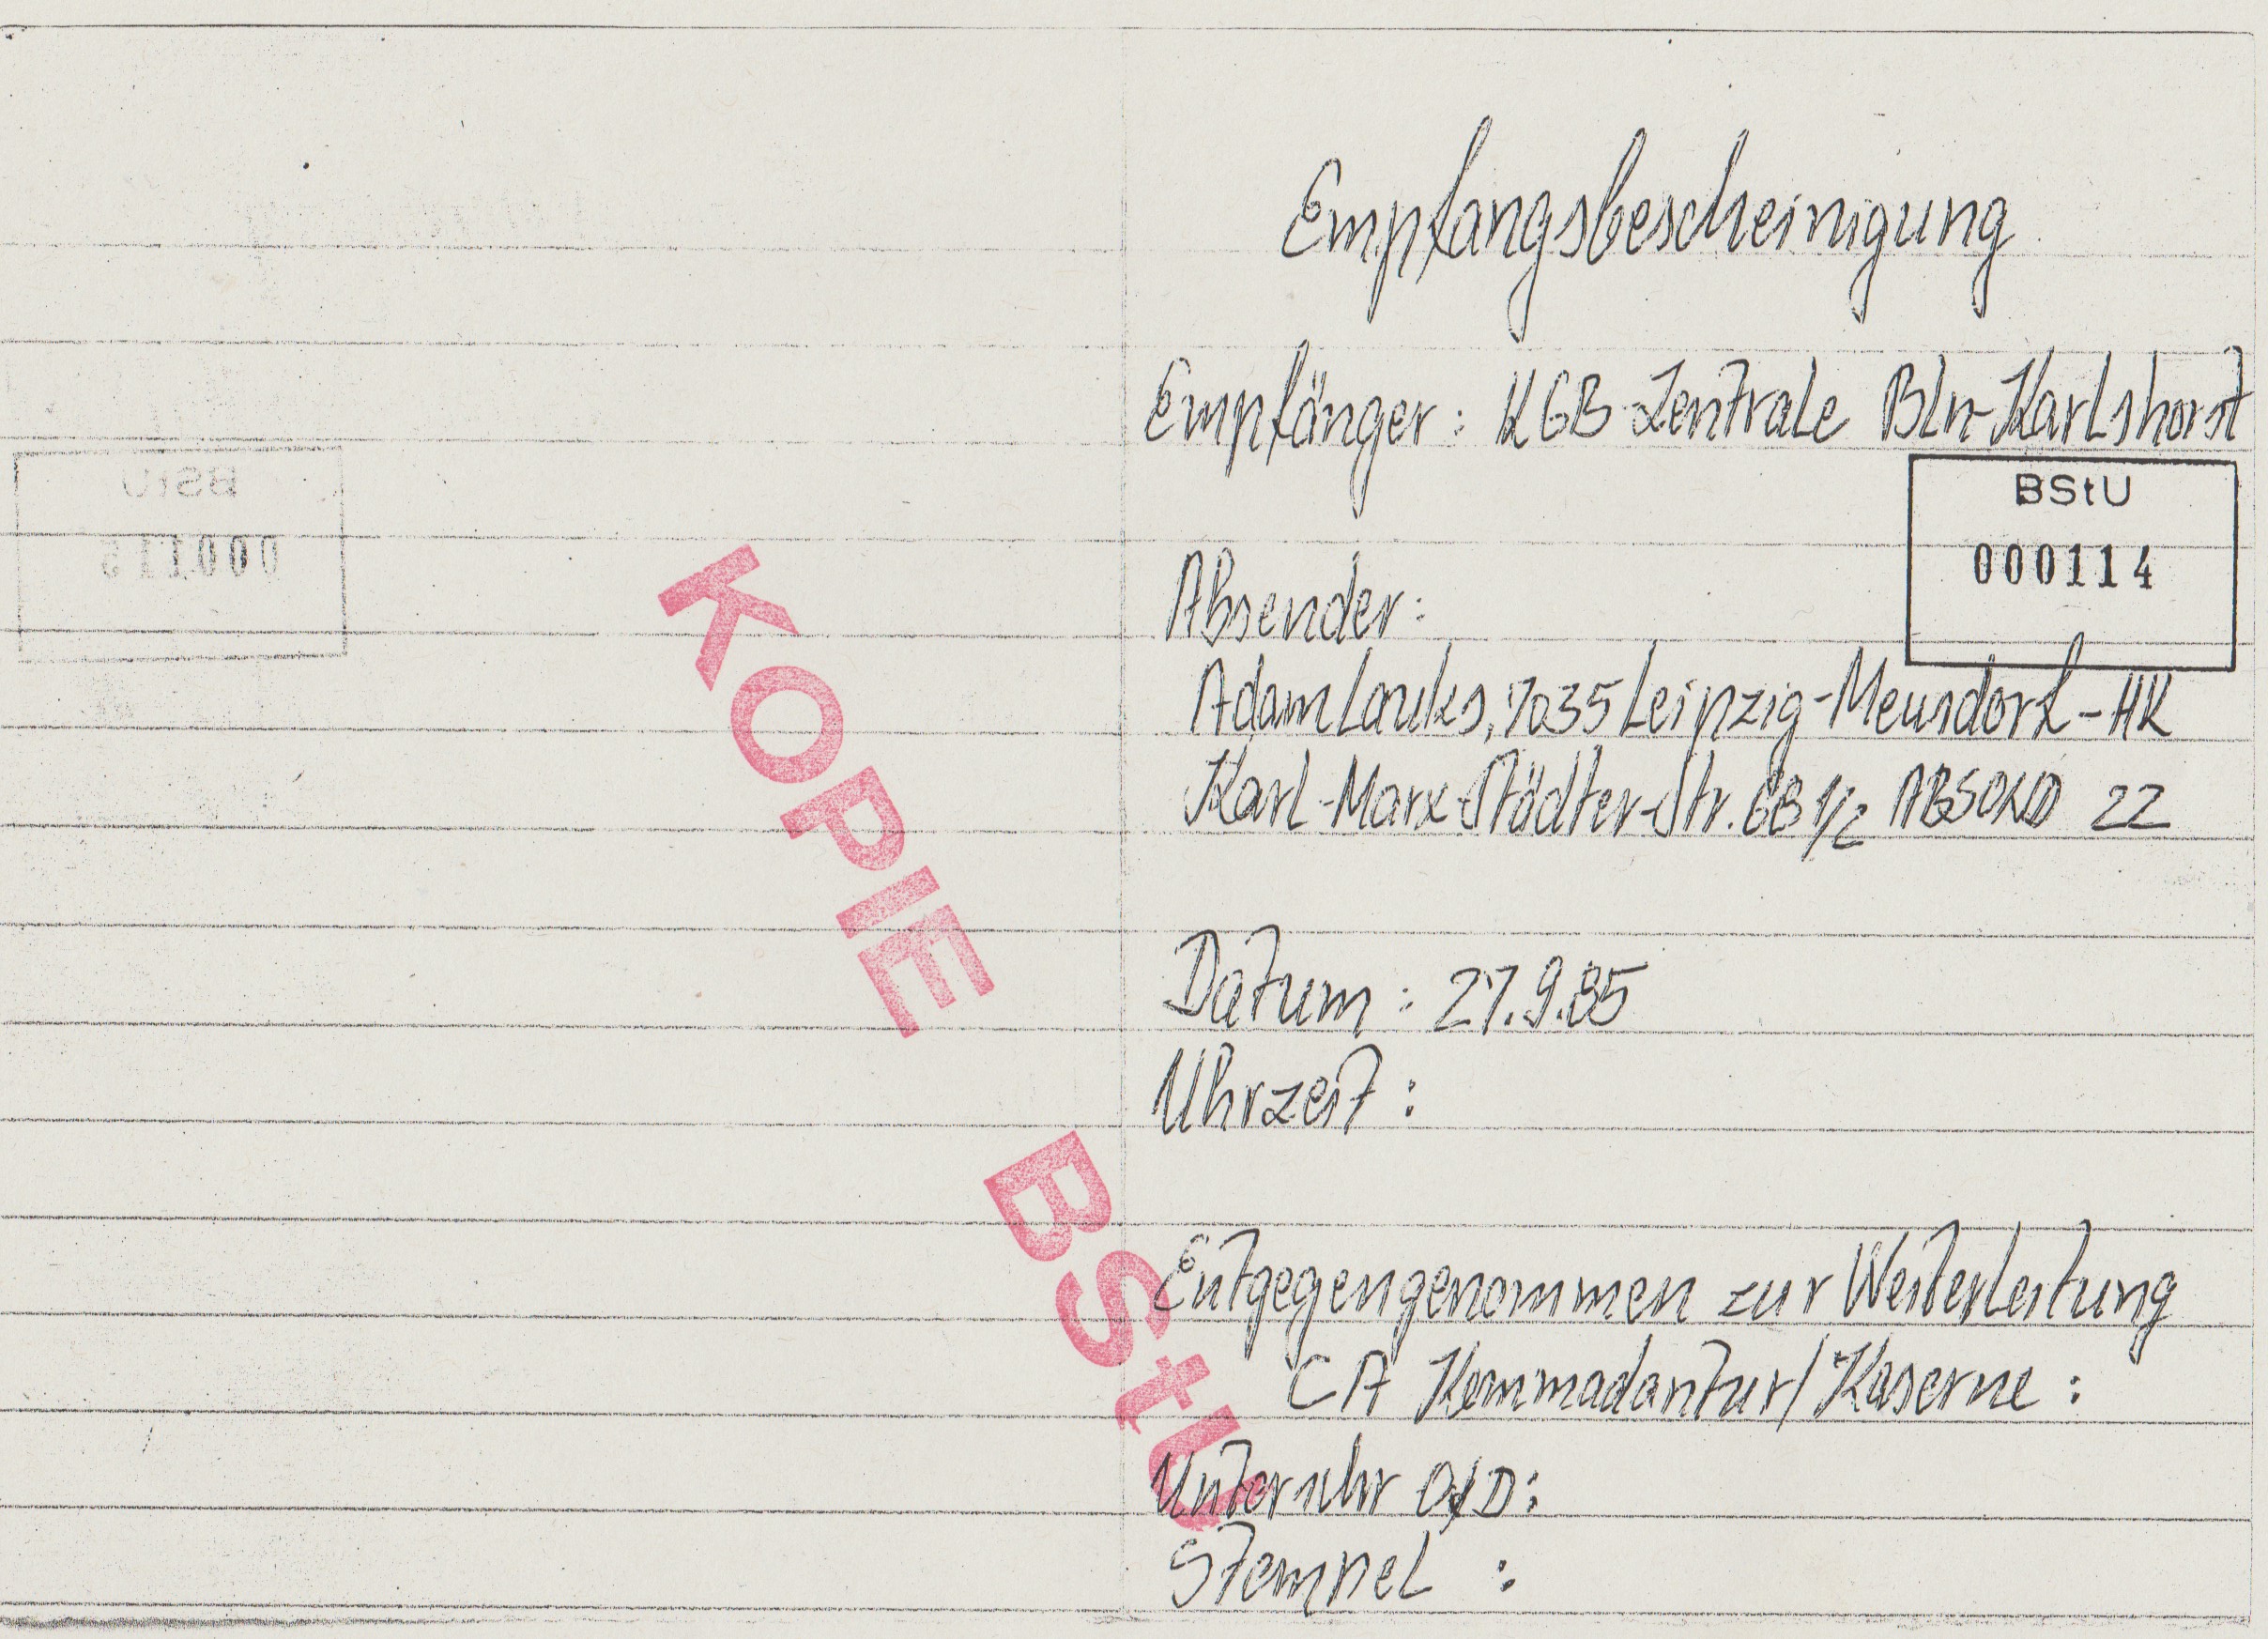 Empfangsbescheinigung
Empfänger: KGB-Zentrale Bln-Karlshorst
BStU
000114
BStU
000115
Absender:
Adam Lauks, 7035 Leipzig-Meusdorf-HK
Karl-Marx-Städter-Str. 6B 1/2 22
Datum: 27.9.85
Uhrzeit:
Entgegengenommen zur Weiterleitung
CA Kommadantur/Kaserne:
Unterschr O/D:
Stempel :
KOPIE BStU